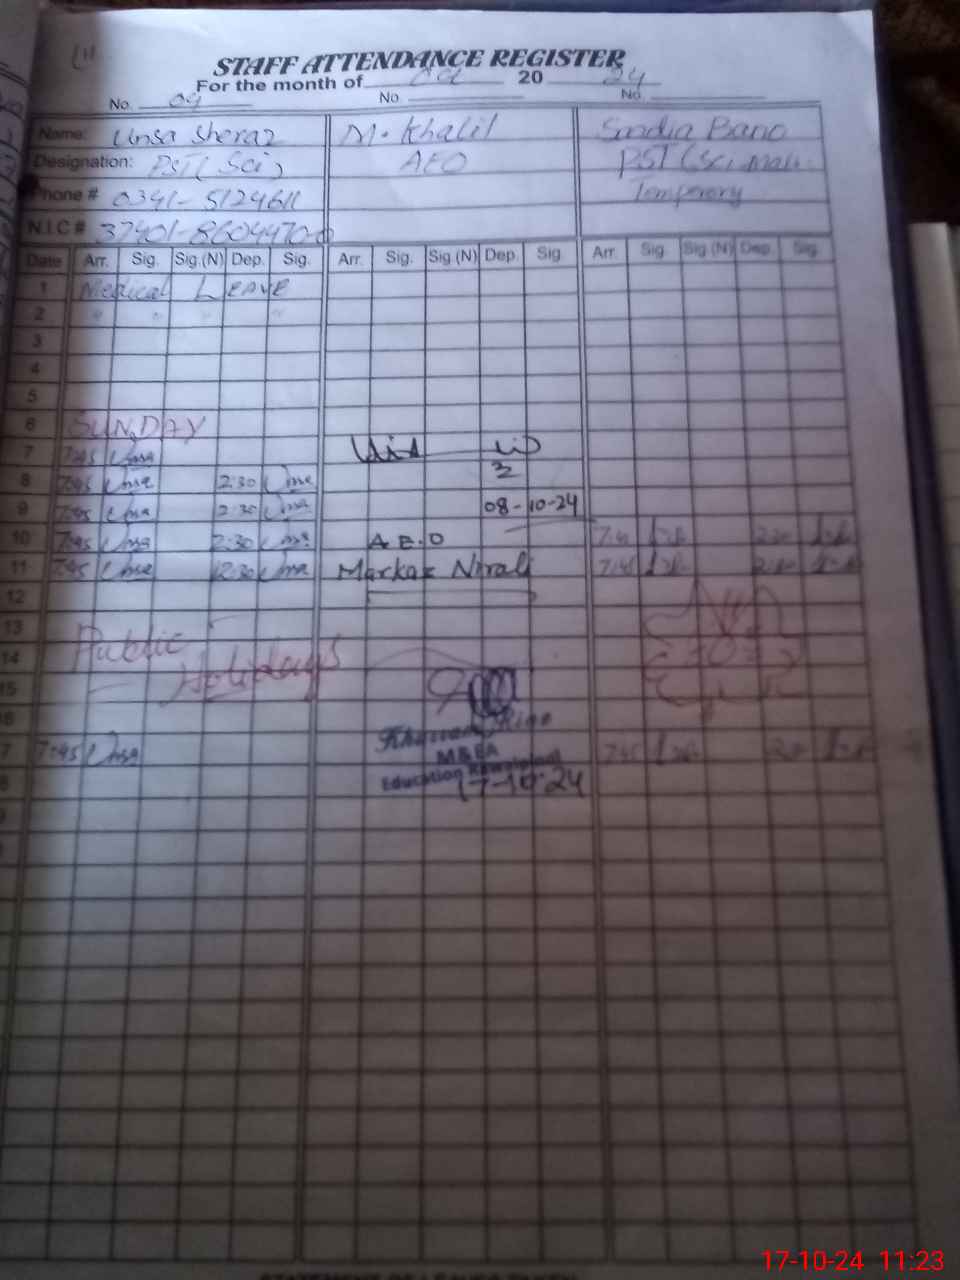 STAFF ATTENDANCE REGISTER
For the month of Oct 20 24
No. 09 No. No.
Name: Unsa Sheraz M. Khalil Sadia Bano
Designation: PST (Sci) AEO PST (Sci Math
Phone # 0341-5124611 Temporery
N.I.C # 37401-8604470-0
Date Arr. Sig. Sig.(N) Dep. Sig. Arr. Sig. Sig (N) Dep. Sig Arr. Sig Sig (N) Dep. Sig.
1 Medical LEAVE
2 " " " "
3
4
5
6 SUNDAY
7 7:45 Unsa
8 7:45 Unsa 2:30 Unsa
9 7:45 Unsa 2:30 Unsa 08-10-24
10 7:45 Unsa 2:30 Unsa A E.O
11 7:45 Unsa 12:30 Unsa Markaz Nirali 7:45
12
13 Public
14 Holidays
15
7 7:45 Unsa 7:45
M&EA
Education Rawalpindi
17-10-24
17-10-24 11:23